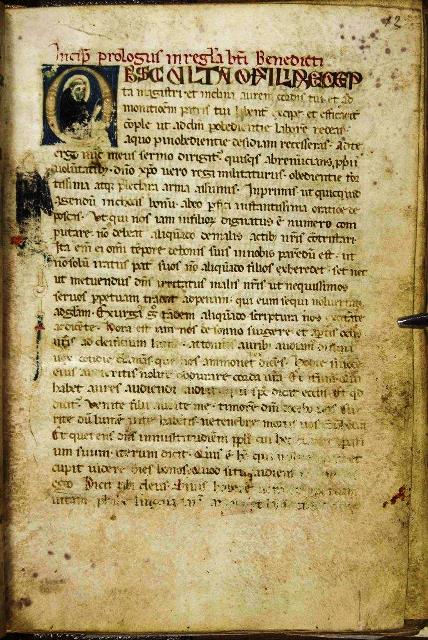 12
Incip prologus in regla bti Benedicti
OBSCULTA O FILI PRECEP
ta magistri et inclina aurem cordis tui et ad
monitionem patris tui libent excipe et efficacit
cople ut ad eum p obedientie laborē redeas
a quo p inobedientie desidiam recesseras. Ad te
ergo nūc meus sermo dirigit quisqs abrenuntians ppiis
voluntatib; dno xpo vero regi militaturus obedientie for
tissima atq; pclara arma assumis. Inprimis ut quicquid
agendū inchoas bonū ab eo pfici instantissima oratiōe de
poscas. Ut qui nos iam in filior dignatus ē numero com
putare nō debeat aliquādo de malis actib; nris cōtristari.
Ita eni ei omi tēpore de bonis suis in nobis parēdū est ut
no solū iratus pat suos nō aliquādo filios exheredet. set nec
ut metuendus dns irritatus malis nris ut nequissimos
servos ppetuam tradat ad penam qui eum sequi noluerint
ad gliam. Exurgam g tādem aliquādo scriptura nos excitāte
ac dicēte. Hora est iam nos de somno surgere et aptis oculis
nris ad deificum lumen attonitis aurib; audiam divina
vox cotidie clamās que nos ammonet dicēs. Hodie si vocē
eius audieritis nolite obdurare corda vra. Et iterum qui
habet aures audiendi audiat quid sps dicat ecclis. Et qd
dicit. Venite filii audite me timorē dni docebo vos. Cur
rite dū lumē vite habetis ne tenebre mortis vos cōphendant
Et querens dns in multitudinem ppli cui hec clamat opari
um suum iterum dicit. Quis ē hō qui vult vitam et
cupit videre dies bonos. Quod si tu audiens respondeas
ego. Dicit tibi deus. Si vis habere
vitam phibe linguā tuā a malo et labia